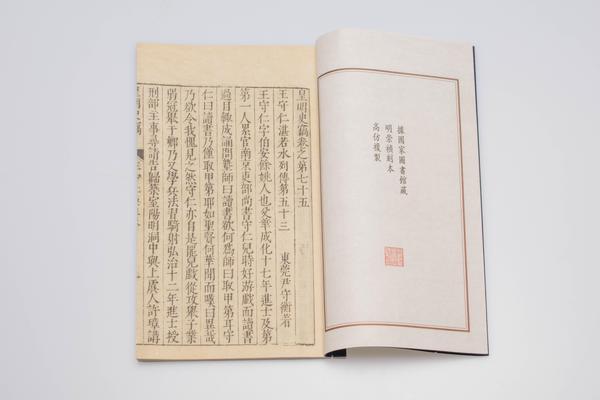 據國家圖書館藏
明崇禎刻本
高仿複製
皇明史竊卷之第七十五
王守仁湛若水列傳第五十三
東莞尹守衡著
王守仁字伯安餘姚人也父華成化十七年進士及第
第一人累官南京吏部尚書守仁兒時好游戲而讀書
過目輒成誦問塾師曰讀書欲何爲師曰取甲第耳守
仁曰讀書乃僅取甲第耶如聖賢何華聞而嘆曰異哉
乃欲令我愧見之然守仁亦自是罷兒戲從攻舉子業
弱冠舉于鄉乃又學兵法習騎射弘治十二年進士授
刑部主事尋請告歸築室陽明洞中與上虞人許璋講
皇明史竊